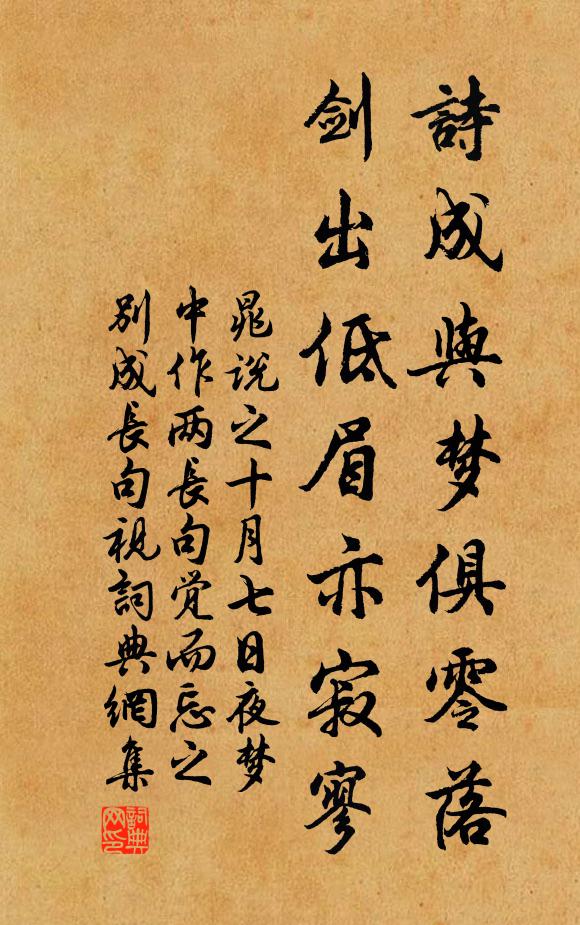 詩成與梦俱零落
剑出低眉亦寂寥
晁说之十月七日夜梦
中作两長句觉而忘之
别成長句視詞典網集
詞典
网印